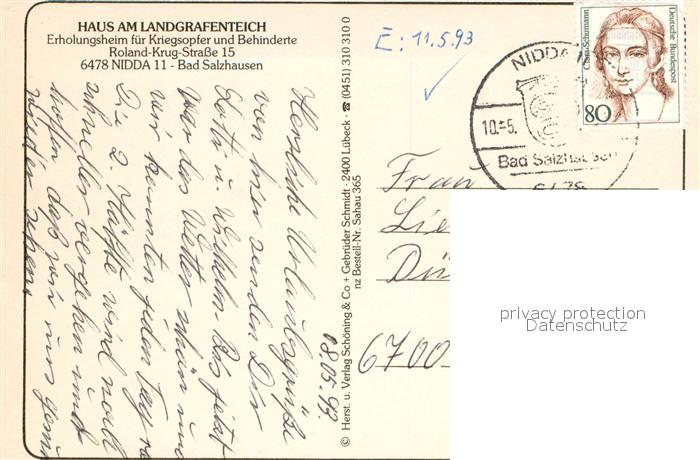 HAUS AM LANDGRAFENTEICH
Erholungsheim für Kriegsopfer und Behinderte
Roland-Krug-Straße 15
6478 NIDDA 11 - Bad Salzhausen
E: 11.5.93
Clara Schumann
Deutsche Bundespost
80
NIDDA
10.-5.
Bad Salzhausen
6478
08.05.93
Herzliche Urlaubsgrüße
von hier senden Dir
u. Wilhelm. Bis jetzt
war das Wetter schön und
wir konnten jeden Tag ra
Die 2. Hälfte wird noch
schneller vergehen und
hoffen daß wir uns gesun
wieder sehen.
© Herst. u. Verlag Schöning & Co + Gebrüder Schmidt · 2400 Lübeck · ☎ (0451) 310 310 0
nz Bestell-Nr. Sahau 365
Frau
Lie
Dü
6700
privacy protection
Datenschutz